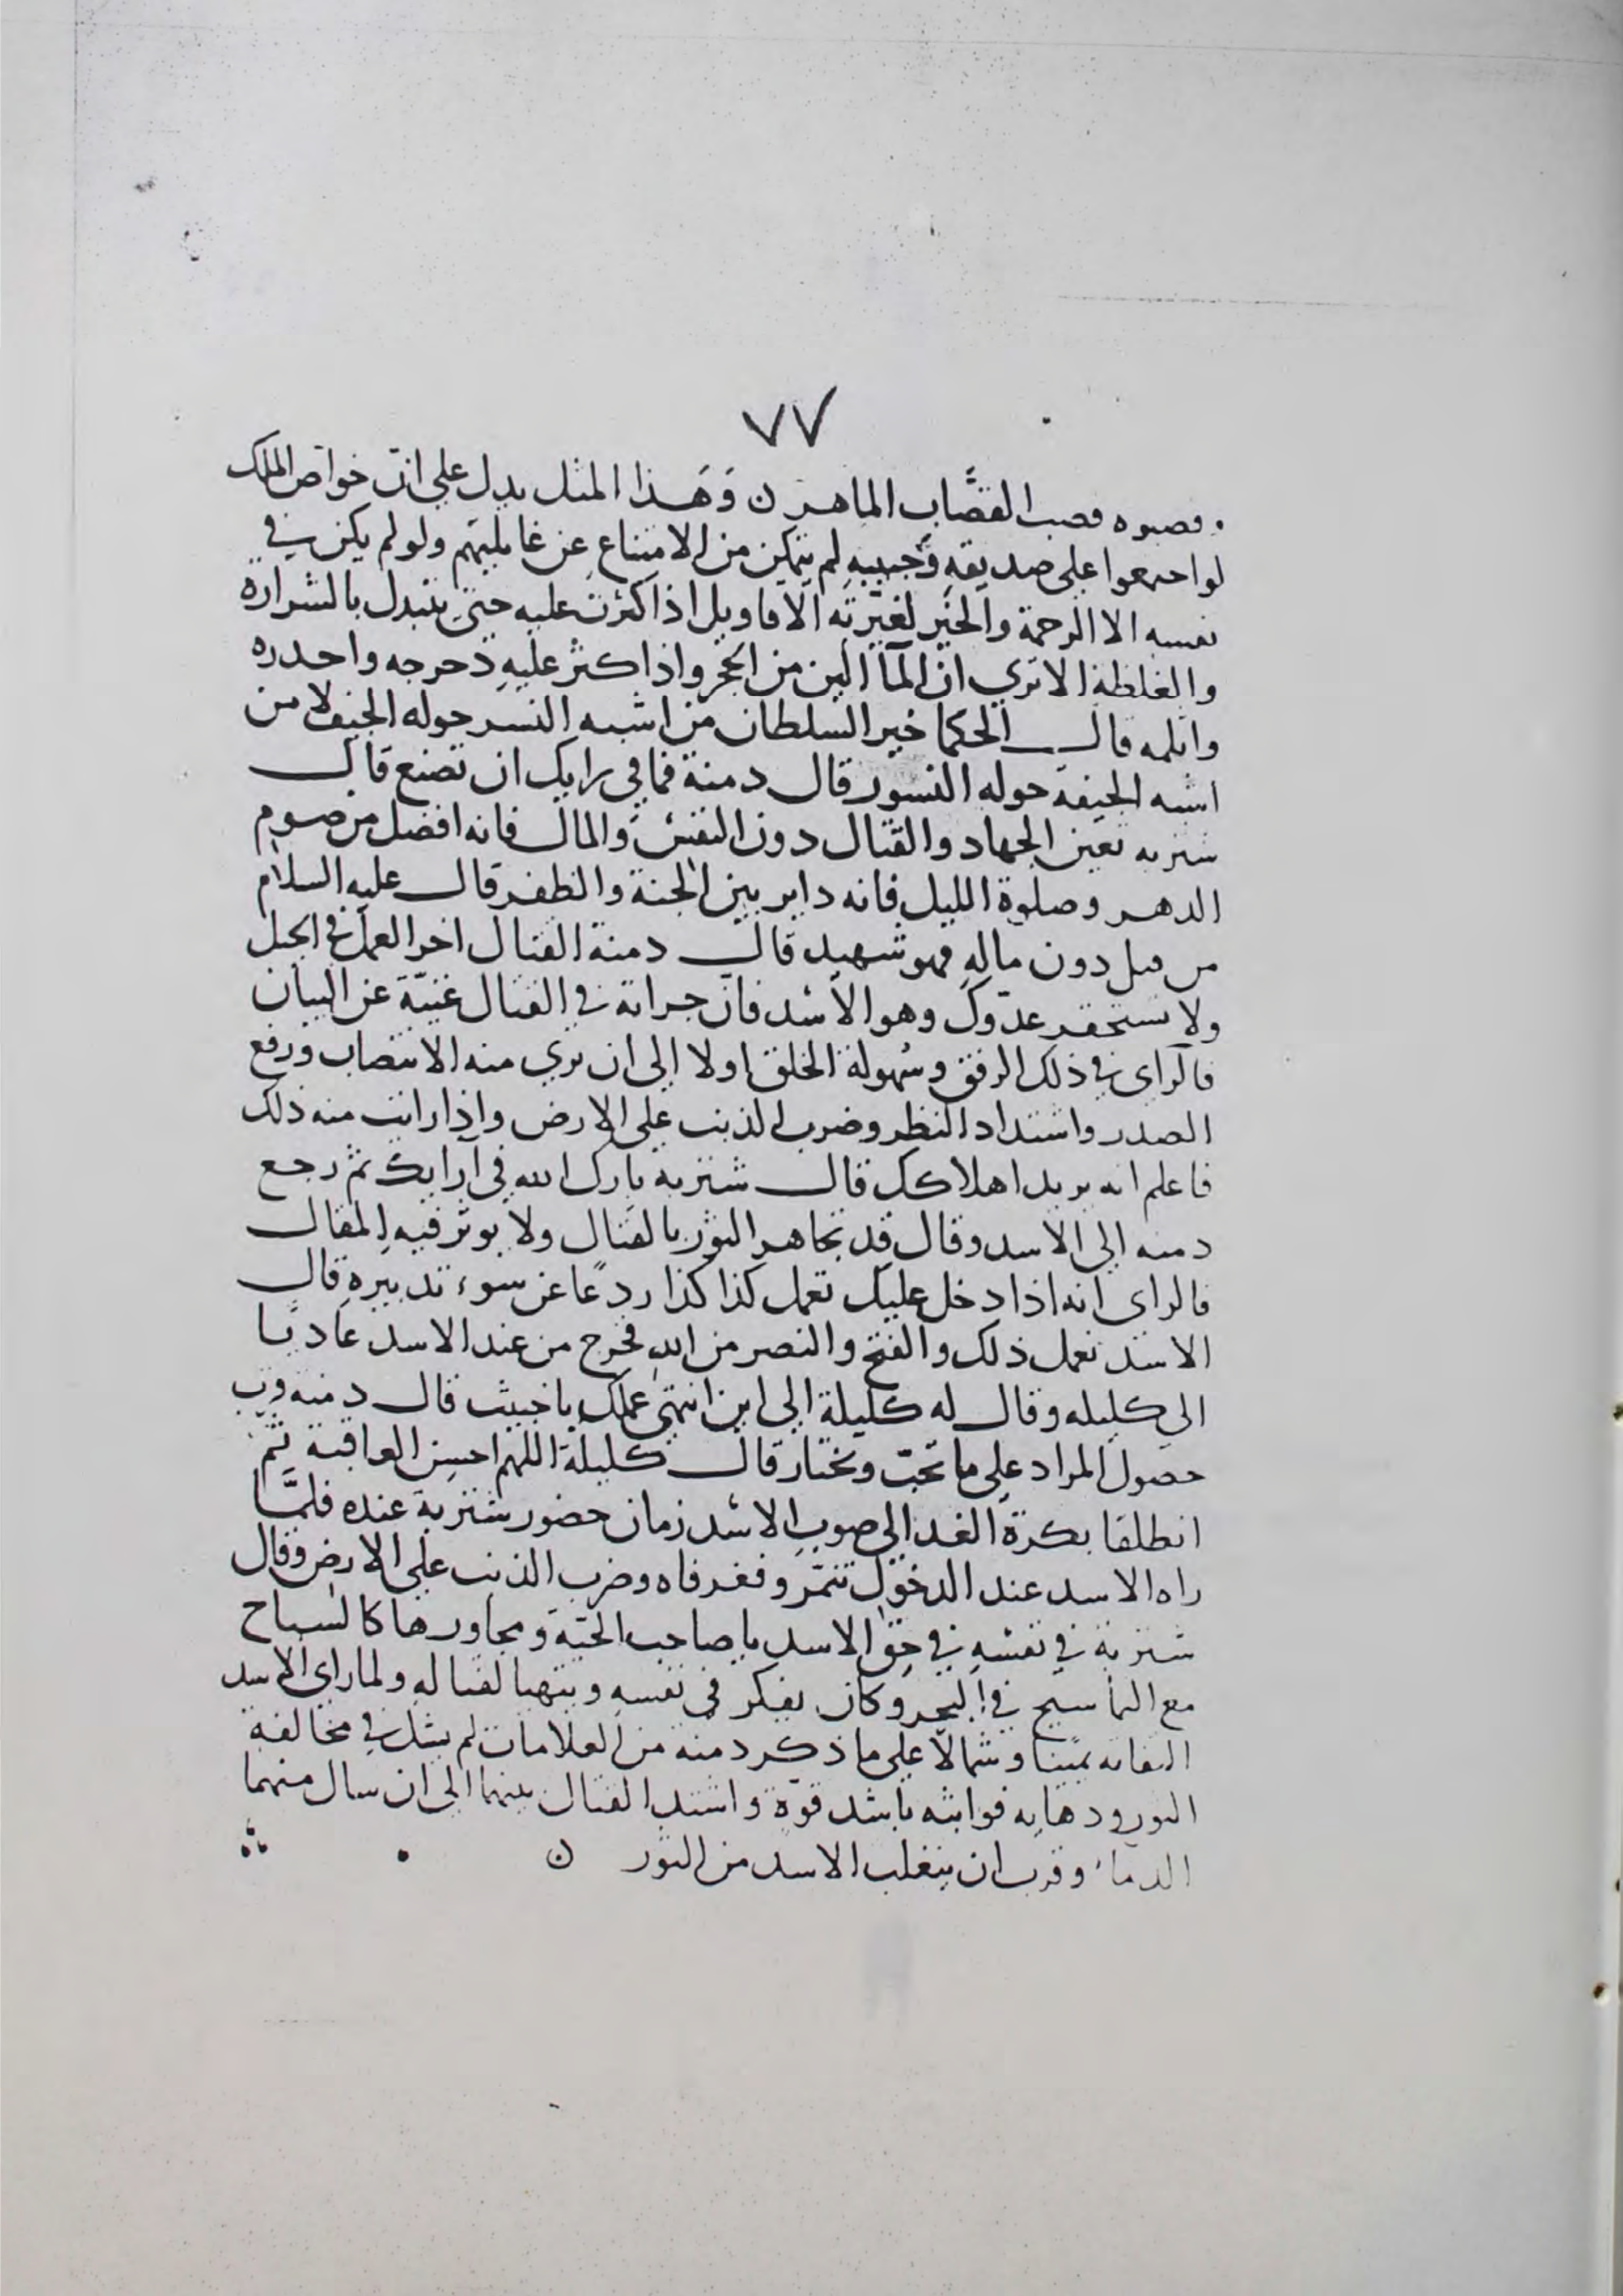 ٧٧
وقصبوه قصب القصَّاب الماهر ن وَهَذا المثل يدل علي انّ خواص الملك
لو اجتمعوا علي صديقه وَحبيبهِ لم يتمكن من الامتناع عن غايليتهم ولو لم يكن في
نفسه الا الرحمة والخير لغيّرته الاقاويل اذا كثرت عليه حتي يتبدل بالشرارة
والغلظة الا تري ان المآ الين من الحجر واذا كثر عليهِ دحرجه واحدره
واثلمه قال الحكما خير السلطان من اشبه النسر حوله الجيف لا من
اشبه الجيفة حوله النسور قال دمنة فما في رايك ان تصنع قال
شنزبه تعين الجهاد والقتال دون النفس والمال فانه افضل من صوم
الدهر وصلوة الليل فانه داير بين الجنة والظفر قال عليه السلام
من قتل دون مالهِ فهو شهيد قال دمنة القتال اخر العمل في الحيل
ولا تستحقر عدوّك وهو الاسد فانّ جراته في القتال غنيّة عن البيان
فالراى في ذلك الرفق وسُهولة الخلق اولا الى ان تري منه الانتصاب ورفع
الصدر واشتداد النظر وضرب الذنب علي الارض واذا رايت منه ذلك
فاعلم انه يريد اهلاكك قال شنزبه بارك الله في ارايك ثم رجع
دمنه الي الاسد وقال قد تجاهر الثور بالقتال ولا يوثر فيه المقال
فالراى انه اذا دخل عليك تعمل كذا كذا ردعًا عن سوء تدبيره قال
الاسد نعمل ذلك والفتح والنصر من الله فخرج من عند الاسد عاديًا
الي كليله وقال له كليلة الي اين انتهي عملك يا خبيث قال دمنه قرب
حصول المراد علي ما تحبّ وتختار قال كليلة اللهم احسن العاقبة ثم
انطلقا بكرة الغد الي صوب الاسد زمان حضور شنزبة عنده فلمَّا
راه الاسد عند الدخول تنمّر وفغر فاه وضرب الذنب علي الارض وقال
شنزبة في نفسه في حق الاسد يا صاحب الحيّة ومجاورها كالسباح
مع التماسيح في البحر وكان يفكر في نفسهِ ويتهيا لقتاله ولما راي الاسد
التفاته يمينا وشمالًا علي ما ذكر دمنه من العلامات لم يشك في مخالفة
الثور ودهايه فواثبه باشد قوّة واشتد القتال بينهما الي ان سال منهما
الدما وقرب ان يتغلب الاسد من الثور ن